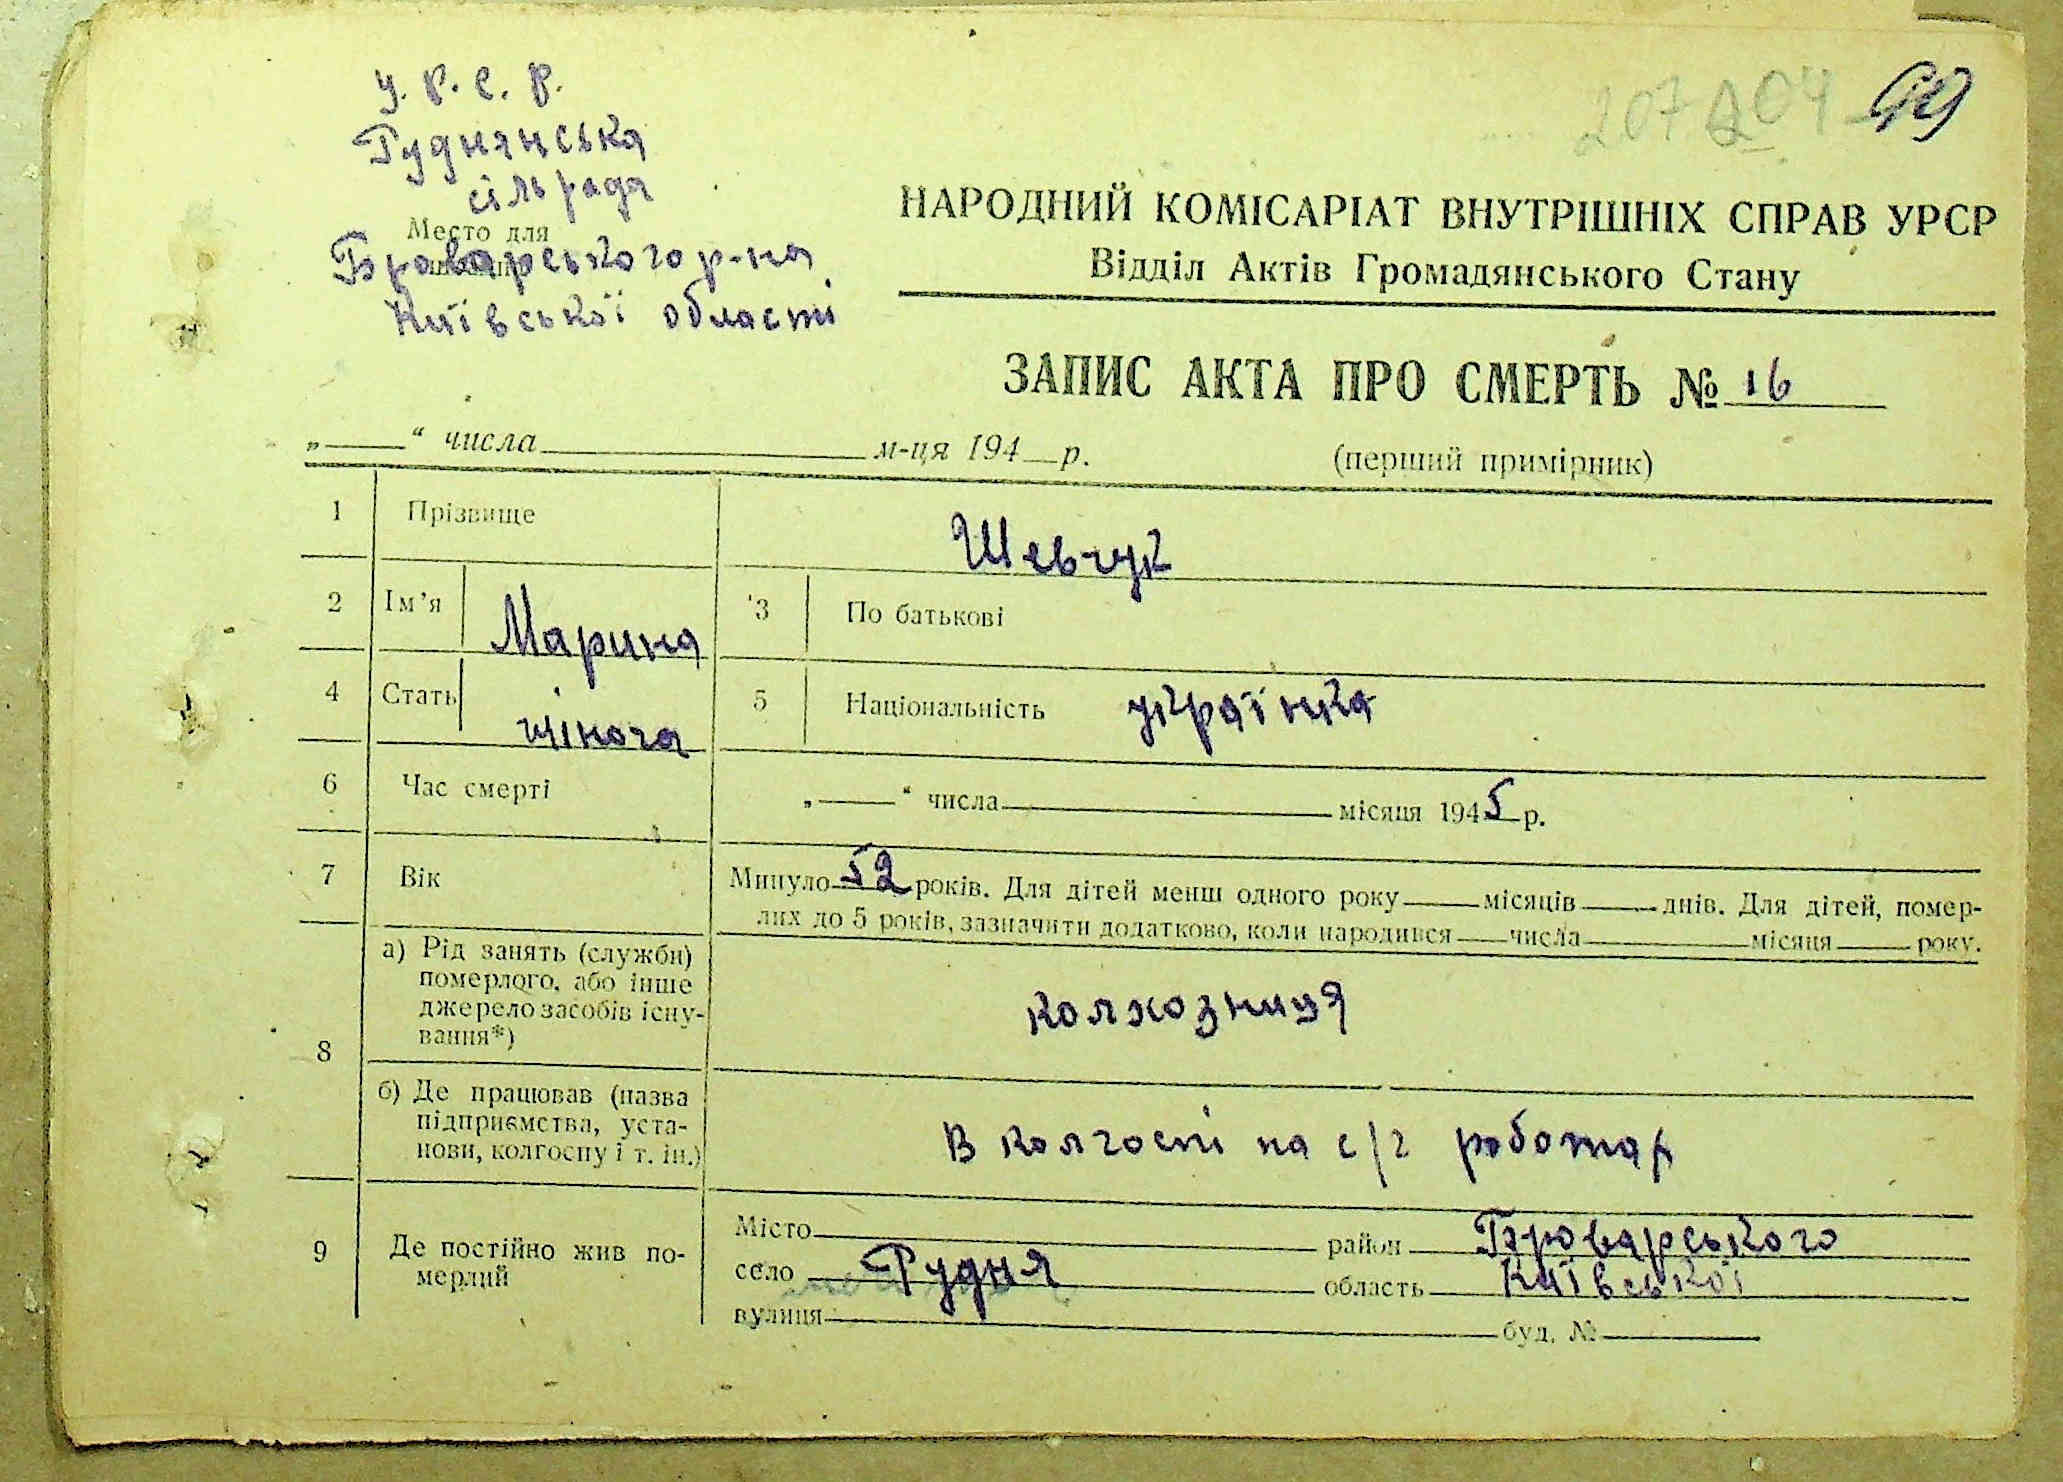 У. Р. С. Р.
Руднянська
сільрада
Место для
Броварського р-на
Київської області
207 204 99
НАРОДНИЙ КОМІСАРІАТ ВНУТРІШНІХ СПРАВ УРСР
Відділ Актів Громадянського Стану
ЗАПИС АКТА ПРО СМЕРТЬ № 16
„____“ числа ____ м-ця 194__р.
(перший примірник)
1 Прізвище Шевчук
2 Ім’я Марина 3 По батькові
4 Стать жіноча 5 Національність українка
6 Час смерті „____“ числа ____ місяця 1945 р.
7 Вік Минуло 52 років. Для дітей менш одного року ____ місяців ____ днів. Для дітей, помер-
лих до 5 років, зазначити додатково, коли народився ____ числа ____ місяця ____ року.
8 а) Рід занять (служби)
померлого, або інше
джерело засобів існу-
вання*)
колхозниця
б) Де працював (назва
підприємства, уста-
нови, колгоспу і т. ін.)
В колгоспі на с/г роботах
9 Де постійно жив по-
мерлий
Місто ____ район Броварського
село Рудня область Київської
вулиця ____ буд. № ____